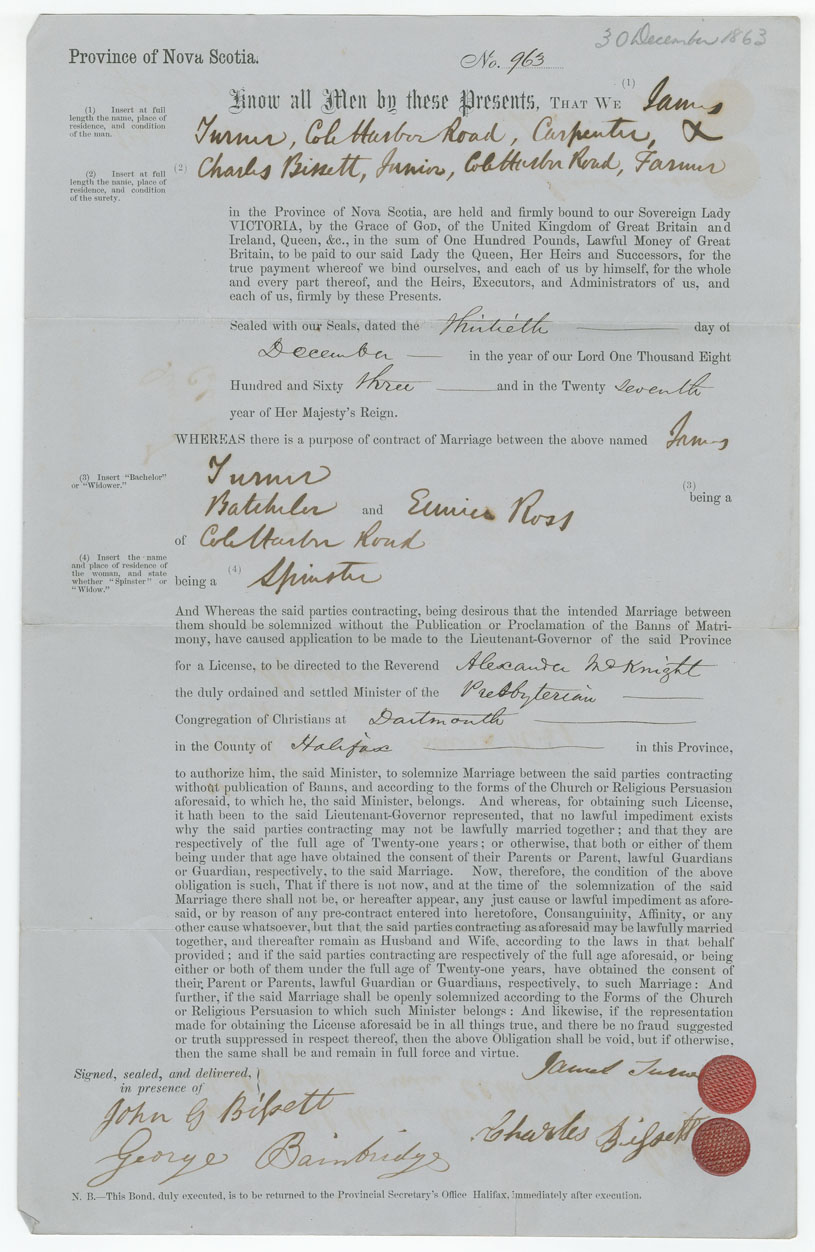 30 December 1863
Province of Nova Scotia.
No. 963
Know all Men by these Presents, THAT WE (1) James
(1) Insert at full
length the name, place of
residence, and condition
of the man.
Turner, Cole Harbor Road, Carpenter, &
(2) Charles Bissett, Junior, Cole Harbor Road, Farmer
(2) Insert at full
length the name, place of
residence, and condition
of the surety.
in the Province of Nova Scotia, are held and firmly bound to our Sovereign Lady
VICTORIA, by the Grace of GOD, of the United Kingdom of Great Britain and
Ireland, Queen, &c., in the sum of One Hundred Pounds, Lawful Money of Great
Britain, to be paid to our said Lady the Queen, Her Heirs and Successors, for the
true payment whereof we bind ourselves, and each of us by himself, for the whole
and every part thereof, and the Heirs, Executors, and Administrators of us, and
each of us, firmly by these Presents.
Sealed with our Seals, dated the Thirtieth day of
December in the year of our Lord One Thousand Eight
Hundred and Sixty three and in the Twenty seventh
year of Her Majesty's Reign.
WHEREAS there is a purpose of contract of Marriage between the above named James
Turner
(3) Insert "Bachelor"
or "Widower."
(3) being a
Batcheler and Eunice Ross
of Cole Harbor Road
(4) Insert the name
and place of residence of
the woman, and state
whether "Spinster" or
"Widow."
being a (4) Spinster
And Whereas the said parties contracting, being desirous that the intended Marriage between
them should be solemnized without the Publication or Proclamation of the Banns of Matri-
mony, have caused application to be made to the Lieutenant-Governor of the said Province
for a License, to be directed to the Reverend Alexander McKnight
the duly ordained and settled Minister of the Presbyterian
Congregation of Christians at Dartmouth
in the County of Halifax in this Province,
to authorize him, the said Minister, to solemnize Marriage between the said parties contracting
without publication of Banns, and according to the forms of the Church or Religious Persuasion
aforesaid, to which he, the said Minister, belongs. And whereas, for obtaining such License,
it hath been to the said Lieutenant-Governor represented, that no lawful impediment exists
why the said parties contracting may not be lawfully married together; and that they are
respectively of the full age of Twenty-one years; or otherwise, that both or either of them
being under that age have obtained the consent of their Parents or Parent, lawful Guardians
or Guardian, respectively, to the said Marriage. Now, therefore, the condition of the above
obligation is such, That if there is not now, and at the time of the solemnization of the said
Marriage there shall not be, or hereafter appear, any just cause or lawful impediment as afore-
said, or by reason of any pre-contract entered into heretofore, Consanguinity, Affinity, or any
other cause whatsoever, but that the said parties contracting as aforesaid may be lawfully married
together, and thereafter remain as Husband and Wife, according to the laws in that behalf
provided; and if the said parties contracting are respectively of the full age aforesaid, or being
either or both of them under the full age of Twenty-one years, have obtained the consent of
their Parent or Parents, lawful Guardian or Guardians, respectively, to such Marriage: And
further, if the said Marriage shall be openly solemnized according to the Forms of the Church
or Religious Persuasion to which such Minister belongs: And likewise, if the representation
made for obtaining the License aforesaid be in all things true, and there be no fraud suggested
or truth suppressed in respect thereof, then the above Obligation shall be void, but if otherwise,
then the same shall be and remain in full force and virtue.
Signed, sealed, and delivered,
in presence of
James Turner
John G Bissett
Charles Bissett
George Bainbridge
N. B.—This Bond, duly executed, is to be returned to the Provincial Secretary's Office Halifax, immediately after execution.